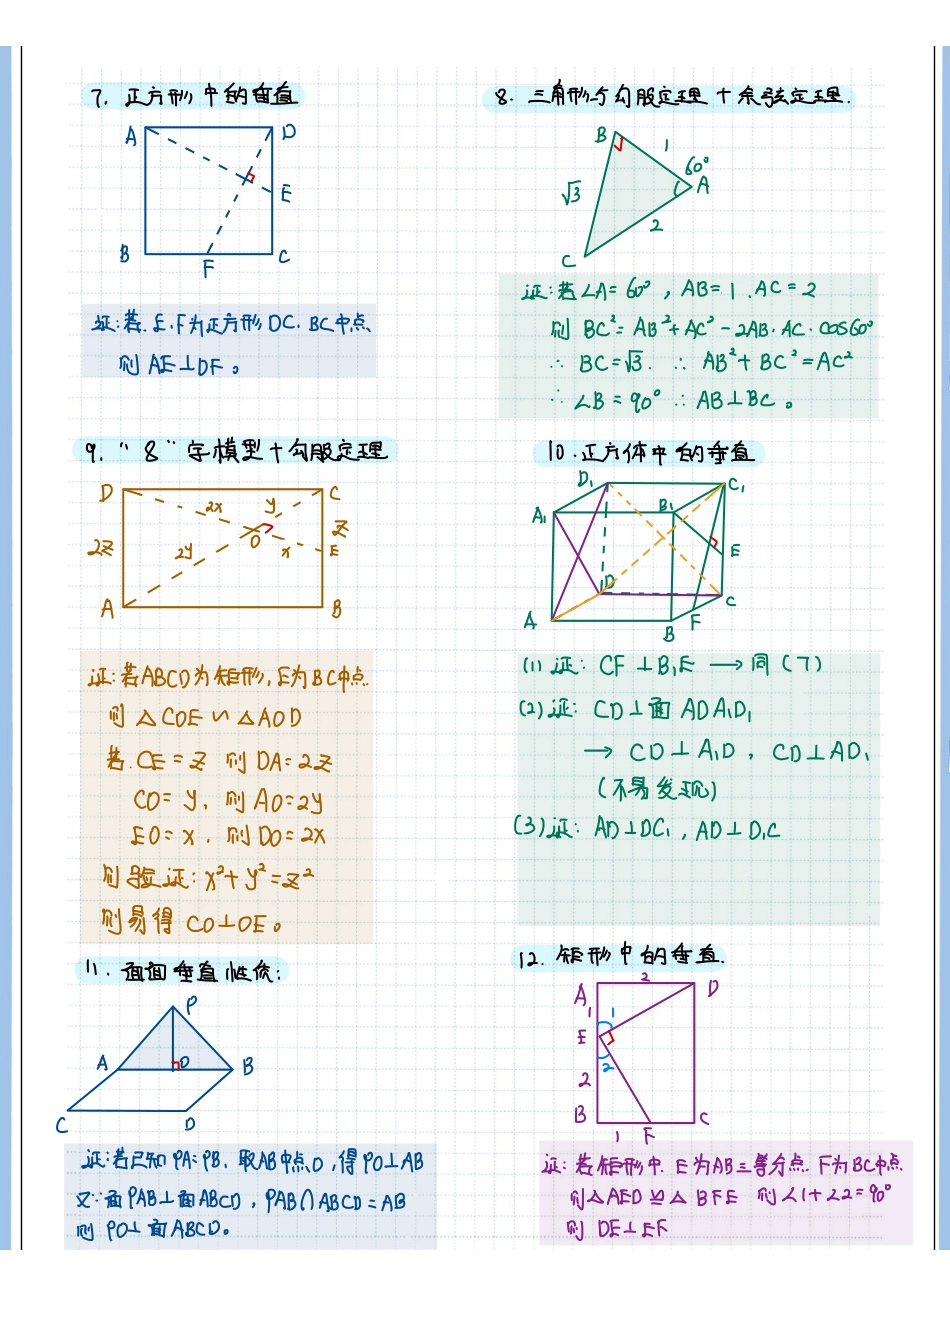 7. 正方形中的垂直
A
D
E
B
F
C
证:若.E.F为正方形DC.BC中点、
则 AE⊥DF。
8. 三角形与勾股定理+余弦定理.
B
1
60°
A
√3
2
C
证:若∠A=60°,AB=1.AC=2
则 BC²=AB²+AC²-2AB·AC·cos60°
∴ BC=√3. ∴ AB²+BC²=AC²
∴ ∠B=90° ∴ AB⊥BC。
9. “8”字模型+勾股定理
D
2x
y
C
z
2z
2y
O
x
E
A
B
证:若ABCD为矩形,E为BC中点.
则 △COE∽△AOD
若.CE=z 则 DA=2z
CO=y, 则 AO=2y
EO=x, 则 DO=2x
则验证:x²+y²=z²
则易得 CO⊥OE。
10.正方体中的垂直
D₁
C₁
A₁
B₁
E
D
C
A
B
F
(1) 证: CF⊥B₁E → 同(7)
(2) 证: CD⊥面ADA₁D₁
→ CD⊥A₁D, CD⊥AD₁
(不易发现)
(3) 证: AD⊥DC₁, AD⊥D₁C
11. 面面垂直性质:
P
A
O
B
C
D
证:若已知PA=PB.取AB中点O,得PO⊥AB
又∵面PAB⊥面ABCD, PAB∩ABCD=AB
则 PO⊥面ABCD。
12. 矩形中的垂直.
2
A
D
1
1
E
2
2
B
C
1
F
证:若矩形中.E为AB三等分点.F为BC中点.
则△AED≌△BFE 则∠1+∠2=90°
则 DE⊥EF